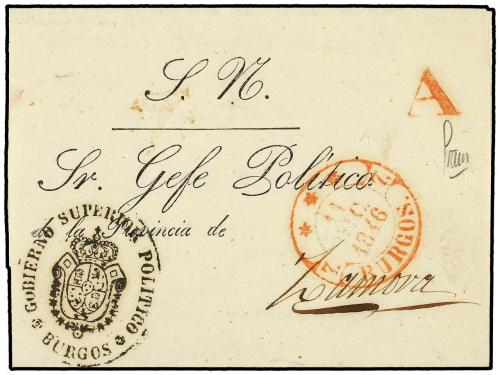 S. N.
A
Sr. Gefe Político
de la Provincia de
Zamora
GOBIERNO SUPERIOR POLITICO
BURGOS
1846
BURGOS